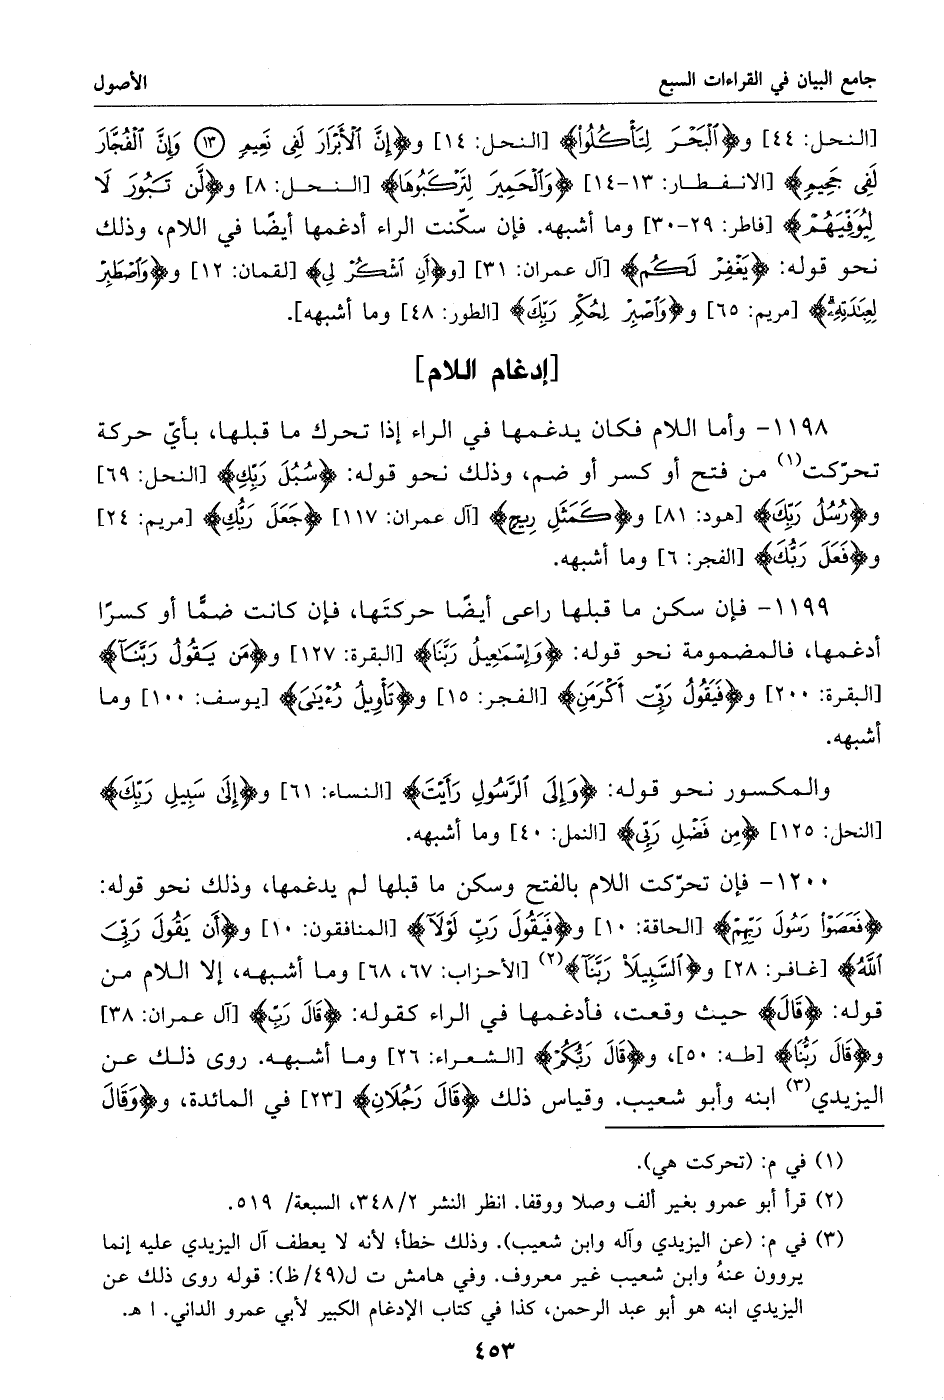 جامع البيان في القراءات السبع
الأصول
[النحل: ٤٤] و﴿ٱلْبَحْرَ لِتَأْكُلُوا۟﴾ [النحل: ١٤] و﴿إِنَّ ٱلْأَبْرَارَ لَفِى نَعِيمٍ ۝١٣ وَإِنَّ ٱلْفُجَّارَ
لَفِى جَحِيمٍ﴾ [الانفطار: ١٣-١٤] ﴿وَٱلْحَمِيرَ لِتَرْكَبُوهَا﴾ [النحل: ٨] و﴿لَّن تَبُورَ لَا
لِيُوَفِّيَهُمْ﴾ [فاطر: ٢٩-٣٠] وما أشبهه. فإن سكّنت الراء أدغمها أيضًا في اللام، وذلك
نحو قوله: ﴿يَغْفِرْ لَكُم﴾ [آل عمران: ٣١] [و﴿أَنِ ٱشْكُرْ لِى﴾ [لقمان: ١٢] و﴿وَٱصْطَبِرْ
لِعِبَٰدَتِهِۦ﴾ [مريم: ٦٥] و﴿وَٱصْبِرْ لِحُكْمِ رَبِّكَ﴾ [الطور: ٤٨] وما أشبهه].
[إدغام اللام]
١١٩٨- وأما اللام فكان يدغمها في الراء إذا تحرك ما قبلها، بأيّ حركة
تحرّكت(١) من فتح أو كسر أو ضم، وذلك نحو قوله: ﴿سُبُلَ رَبِّكِ﴾ [النحل: ٦٩]
و﴿رُسُلُ رَبِّكَ﴾ [هود: ٨١] و﴿كَمَثَلِ رِيحٍ﴾ [آل عمران: ١١٧] ﴿جَعَلَ رَبُّكِ﴾ [مريم: ٢٤]
و﴿فَعَلَ رَبُّكَ﴾ [الفجر: ٦] وما أشبهه.
١١٩٩- فإن سكن ما قبلها راعى أيضًا حركتَها، فإن كانت ضمًّا أو كسرًا
أدغمها، فالمضمومة نحو قوله: ﴿وَإِسْمَٰعِيلُ رَبَّنَا﴾ [البقرة: ١٢٧] و﴿مَن يَقُولُ رَبَّنَآ﴾
[البقرة: ٢٠٠] و﴿فَيَقُولُ رَبِّىٓ أَكْرَمَنِ﴾ [الفجر: ١٥] و﴿تَأْوِيلُ رُءْيَٰىَ﴾ [يوسف: ١٠٠] وما
أشبهه.
والمكسور نحو قوله: ﴿وَإِلَى ٱلرَّسُولِ رَأَيْتَ﴾ [النساء: ٦١] و﴿إِلَىٰ سَبِيلِ رَبِّكَ﴾
[النحل: ١٢٥] ﴿مِن فَضْلِ رَبِّى﴾ [النمل: ٤٠] وما أشبهه.
١٢٠٠- فإن تحرّكت اللام بالفتح وسكن ما قبلها لم يدغمها، وذلك نحو قوله:
﴿فَعَصَوْا۟ رَسُولَ رَبِّهِمْ﴾ [الحاقة: ١٠] و﴿فَيَقُولَ رَبِّ لَوْلَآ﴾ [المنافقون: ١٠] و﴿أَن يَقُولَ رَبِّىَ
ٱللَّهُ﴾ [غافر: ٢٨] و﴿ٱلسَّبِيلَا۠ رَبَّنَآ﴾(٢) [الأحزاب: ٦٧، ٦٨] وما أشبهه، إلا اللام من
قوله: ﴿قَالَ﴾ حيث وقعت، فأدغمها في الراء كقوله: ﴿قَالَ رَبِّ﴾ [آل عمران: ٣٨]
و﴿قَالَ رَبُّنَا﴾ [طه: ٥٠]، و﴿قَالَ رَبُّكُمْ﴾ [الشعراء: ٢٦] وما أشبهه. روى ذلك عن
اليزيدي(٣) ابنه وأبو شعيب. وقياس ذلك ﴿قَالَ رَجُلَانِ﴾ [٢٣] في المائدة، و﴿وَقَالَ
(١) في م: (تحركت هي).
(٢) قرأ أبو عمرو بغير ألف وصلا ووقفا. انظر النشر ٣٤٨/٢، السبعة/ ٥١٩.
(٣) في م: (عن اليزيدي وآله وابن شعيب). وذلك خطأ؛ لأنه لا يعطف آل اليزيدي عليه إنما
يروون عنهُ وابن شعيب غير معروف. وفي هامش ت ل(٤٩/ظ): قوله روى ذلك عن
اليزيدي ابنه هو أبو عبد الرحمن، كذا في كتاب الإدغام الكبير لأبي عمرو الداني. ا هـ.
٤٥٣